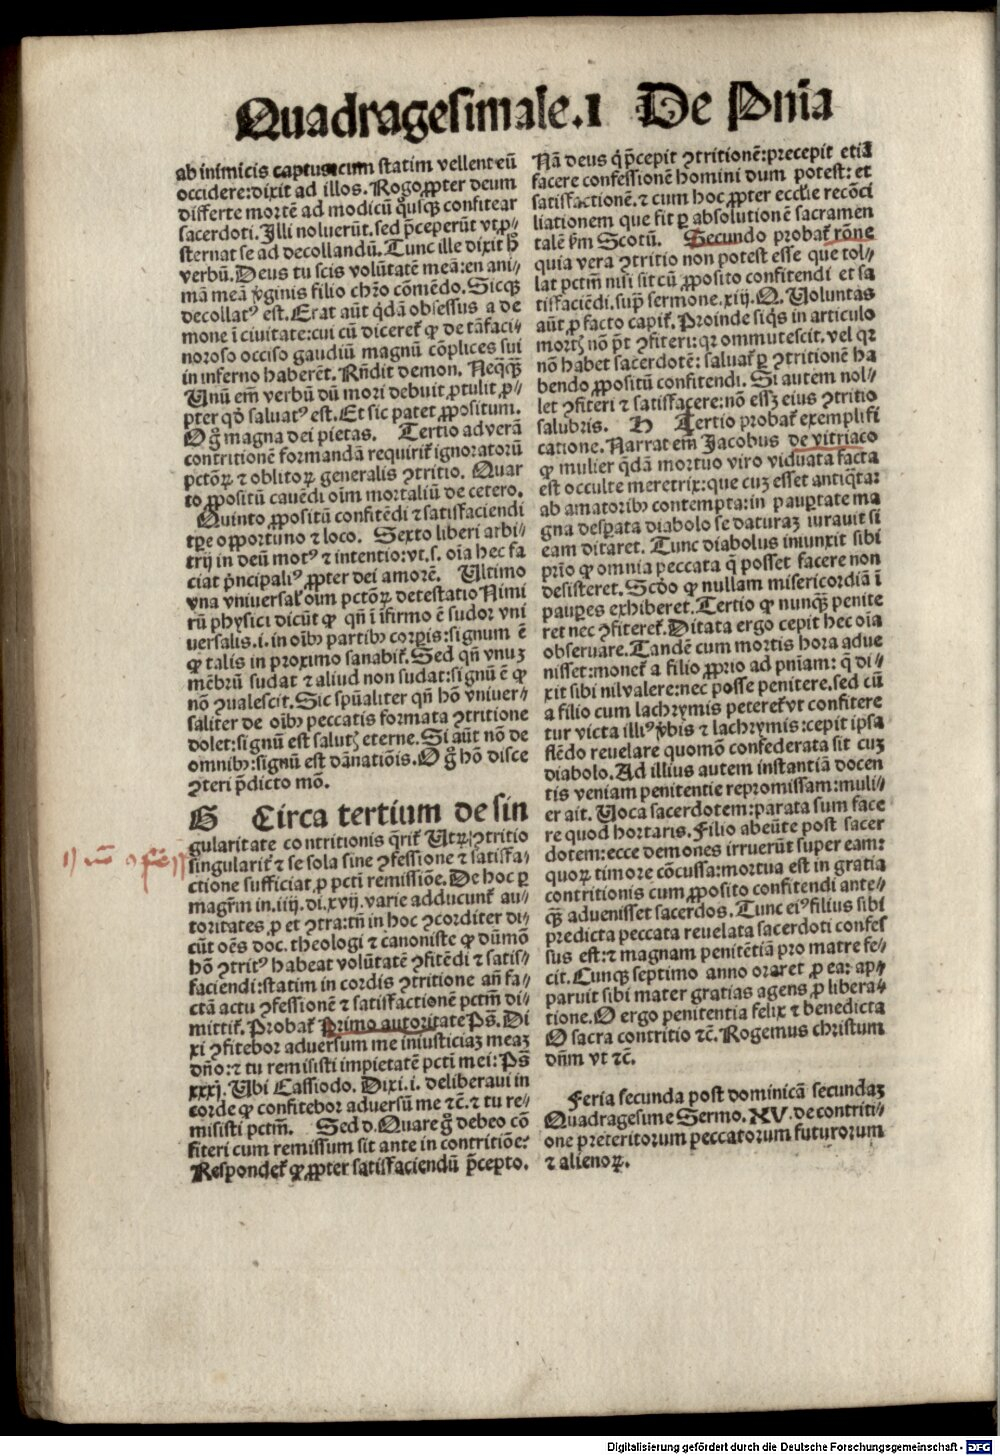 Quadragesimale.I De Pnīa
ab inimicis captus:cum statim vellent eū
occidere:dixit ad illos. Rogo ꝓpter deum
differte mortē ad modicū qͥusqꝫ confitear
sacerdoti. Illi noluerūt.sed p̄ceperūt vt ꝓ⸗
sternat se ad decollandū. Tunc ille dixit hͦ
verbū. Deus tu scis volūtatē meā:en ani⸗
mā meā v̓ginis filio chr̄o cōmēdo. Sicqꝫ
decollatꝰ est. Erat aūt qͥdā obsessus a de
mone ī ciuitate:cui cū diceret̉ ꝙ de tā faci⸗
noroso occiso gaudiū magnū cōplices sui
in inferno haberēt. Rn̄dit demon. Neqͣqͣꝫ
Unū em̄ verbū dū mori debuit ꝓtulit ꝓ⸗
pter qd̓ saluatꝰ est. Et sic patet ꝓpositum.
O gͦ magna dei pietas. Tertio ad verā
contritionē formandā requirit̉ ignoratorū
pctōꝝ ⁊ oblitoꝝ generalis ꝯtritio. Quar
to ꝓpositū cauēdi oīm mortaliū de cetero.
Quinto ꝓpositū confitēdi ⁊ satisfaciendi
tꝑe oꝓportuno ⁊ loco. Sexto liberi arbi⸗
trij in deū motꝰ ⁊ intentio:vt.s. oīa hec fa
ciat pͥncipaliꝰ ꝓpter dei amorē. Ultimo
vna vniuersal̓ oīm pctōꝝ detestatio Nimi
rū physici dicūt ꝙ qn̄ ī īfirmo ē sudoꝛ vni
uersalis.i. in oībꝰ partibꝰ corꝑis:signum ē
ꝙ talis in proximo sanabit̉. Sed qn̄ vnuꝫ
mēbrū sudat ⁊ aliud non sudat:signū ē ꝙ
nō ꝯualescit. Sic spūaliter qn̄ hō vniuer⸗
saliter de oībꝰ peccatis formata ꝯtritione
dolet:signū est salutꝭ eterne. Si aūt nō de
omnibꝰ:signū est dānatiōis. O gͦ hō disce
ꝯteri p̄dicto mō.
G Circa tertium de sin
gularitate contritionis qͥrit̉ Utꝝ ꝯtritio
singularit̉ ⁊ se sola sine ꝯfessione ⁊ satisfa⸗
ctione sufficiat ꝓ pcti remissiōe. De hoc ꝑ
magr̄m in.iiij.di.xvij.varie adducunt̉ au⸗
toritates ꝓ et ꝯtra:tn̄ in hoc ꝯcorditer di⸗
cūt oēs doc. theologi ⁊ canoniste ꝙ dūmō
hō ꝯtritꝰ habeat volūtatē ꝯfitēdi ⁊ satis⸗
faciendi:statim in cordis ꝯtritione an̄ fa⸗
ctā actu ꝯfessionē ⁊ satisfactionē pctm̄ di⸗
mittit̉. Probat̉ Primo autoritate Ps̄. Di
xi ꝯfitebor aduersum me iniusticiaꝫ meaꝫ
dn̄o:⁊ tu remisisti impietatē pcti mei: Ps̄
xxxj. Ubi Cassiodo. Dixi.i. deliberaui in
corde ꝙ confitebor aduersū me ⁊c̄.⁊ tu re⸗
misisti pctm̄. Sed d. Quare gͦ debeo cō
fiteri cum remissum sit ante in contritiōe?
Respondet̉ ꝙ ꝓpter satisfaciendū p̄cepto.
Nā deus qͥ p̄cepit ꝯtritionē:precepit etiā
facere confessionē homini dum potest: et
satisfactionē.⁊ cum hoc ꝓpter eccl̓ie recōci
liationem que fit ꝑ absolutionē sacramen
talē ẜm Scotū. Secundo probat̉ rōne
quia vera ꝯtritio non potest esse que tol⸗
lat pctm̄ nisi sit cū ꝓposito confitendi et sa
tisfaciēdi.supͣ sermone.xiij. Q. Voluntas
aūt ꝓ facto capit̉. Proinde siqͥs in articulo
mortꝭ nō pōt ꝯfiteri:qꝛ ommutescit. vel qꝛ
nō habet sacerdotē: saluat̉ ꝑ ꝯtritionē ha
bendo ꝓpositū confitendi. Si autem nol⸗
let ꝯfiteri ⁊ satisfacere:nō esset eius ꝯtritio
salubris. H Tertio probat̉ exemplifi
catione. Narrat em̄ Jacobus de vitriaco
ꝙ mulier qͥdā mortuo viro viduata facta
est occulte meretrix:que cuꝫ esset antiqͣta:
ab amatoribꝰ contempta:in pauꝑtate ma
gna desꝑata diabolo se daturaꝫ iurauit si
eam ditaret. Tunc diabolus iniunxit sibi
prīo ꝙ omnia peccata qͣ posset facere non
desisteret. Scd̓o ꝙ nullam misericordiā ī
pauꝑes exhiberet. Tertio ꝙ nunqͣꝫ penite
ret nec ꝯfiteret̉. Ditata ergo cepit hec oīa
obseruare. Tandē cum mortis hora adue
nisset:monet̉ a filio ꝓprio ad pnīam: qͥ di⸗
xit sibi nil valere:nec posse penitere.sed cū
a filio cum lachrymis peteret̉ vt confitere
tur victa illiꝰ v̓bis ⁊ lachrymis:cepit ipsa
flēdo reuelare quomō confederata sit cuꝫ
diabolo. Ad illius autem instantiā docen
tis veniam penitentie repromissam:muli⸗
er ait. Uoca sacerdotem:parata sum face
re quod hortaris. Filio abeūte post sacer
dotem:ecce demones irruerūt super eam:
quoꝝ timore cōcussa:mortua est in gratia
contritionis cum ꝓposito confitendi ante⸗
qͣꝫ aduenisset sacerdos. Tunc eiꝰ filius sibi
predicta peccata reuelata sacerdoti confes
sus est:⁊ magnam penitētiā pro matre fe⸗
cit. Cunqꝫ septimo anno oraret ꝓ ea: ap⸗
paruit sibi mater gratias agens ꝓ libera⸗
tione. O ergo penitentia felix ⁊ benedicta
O sacra contritio ⁊c̄. Rogemus christum
dn̄m vt ⁊c̄.
Feria secunda post dominicā secundaꝫ
Quadragesime Sermo. XV. de contriti⸗
one preteritorum peccatorum futurorum
⁊ alienoꝝ.
Digitalisierung gefördert durch die Deutsche Forschungsgemeinschaft - DFG